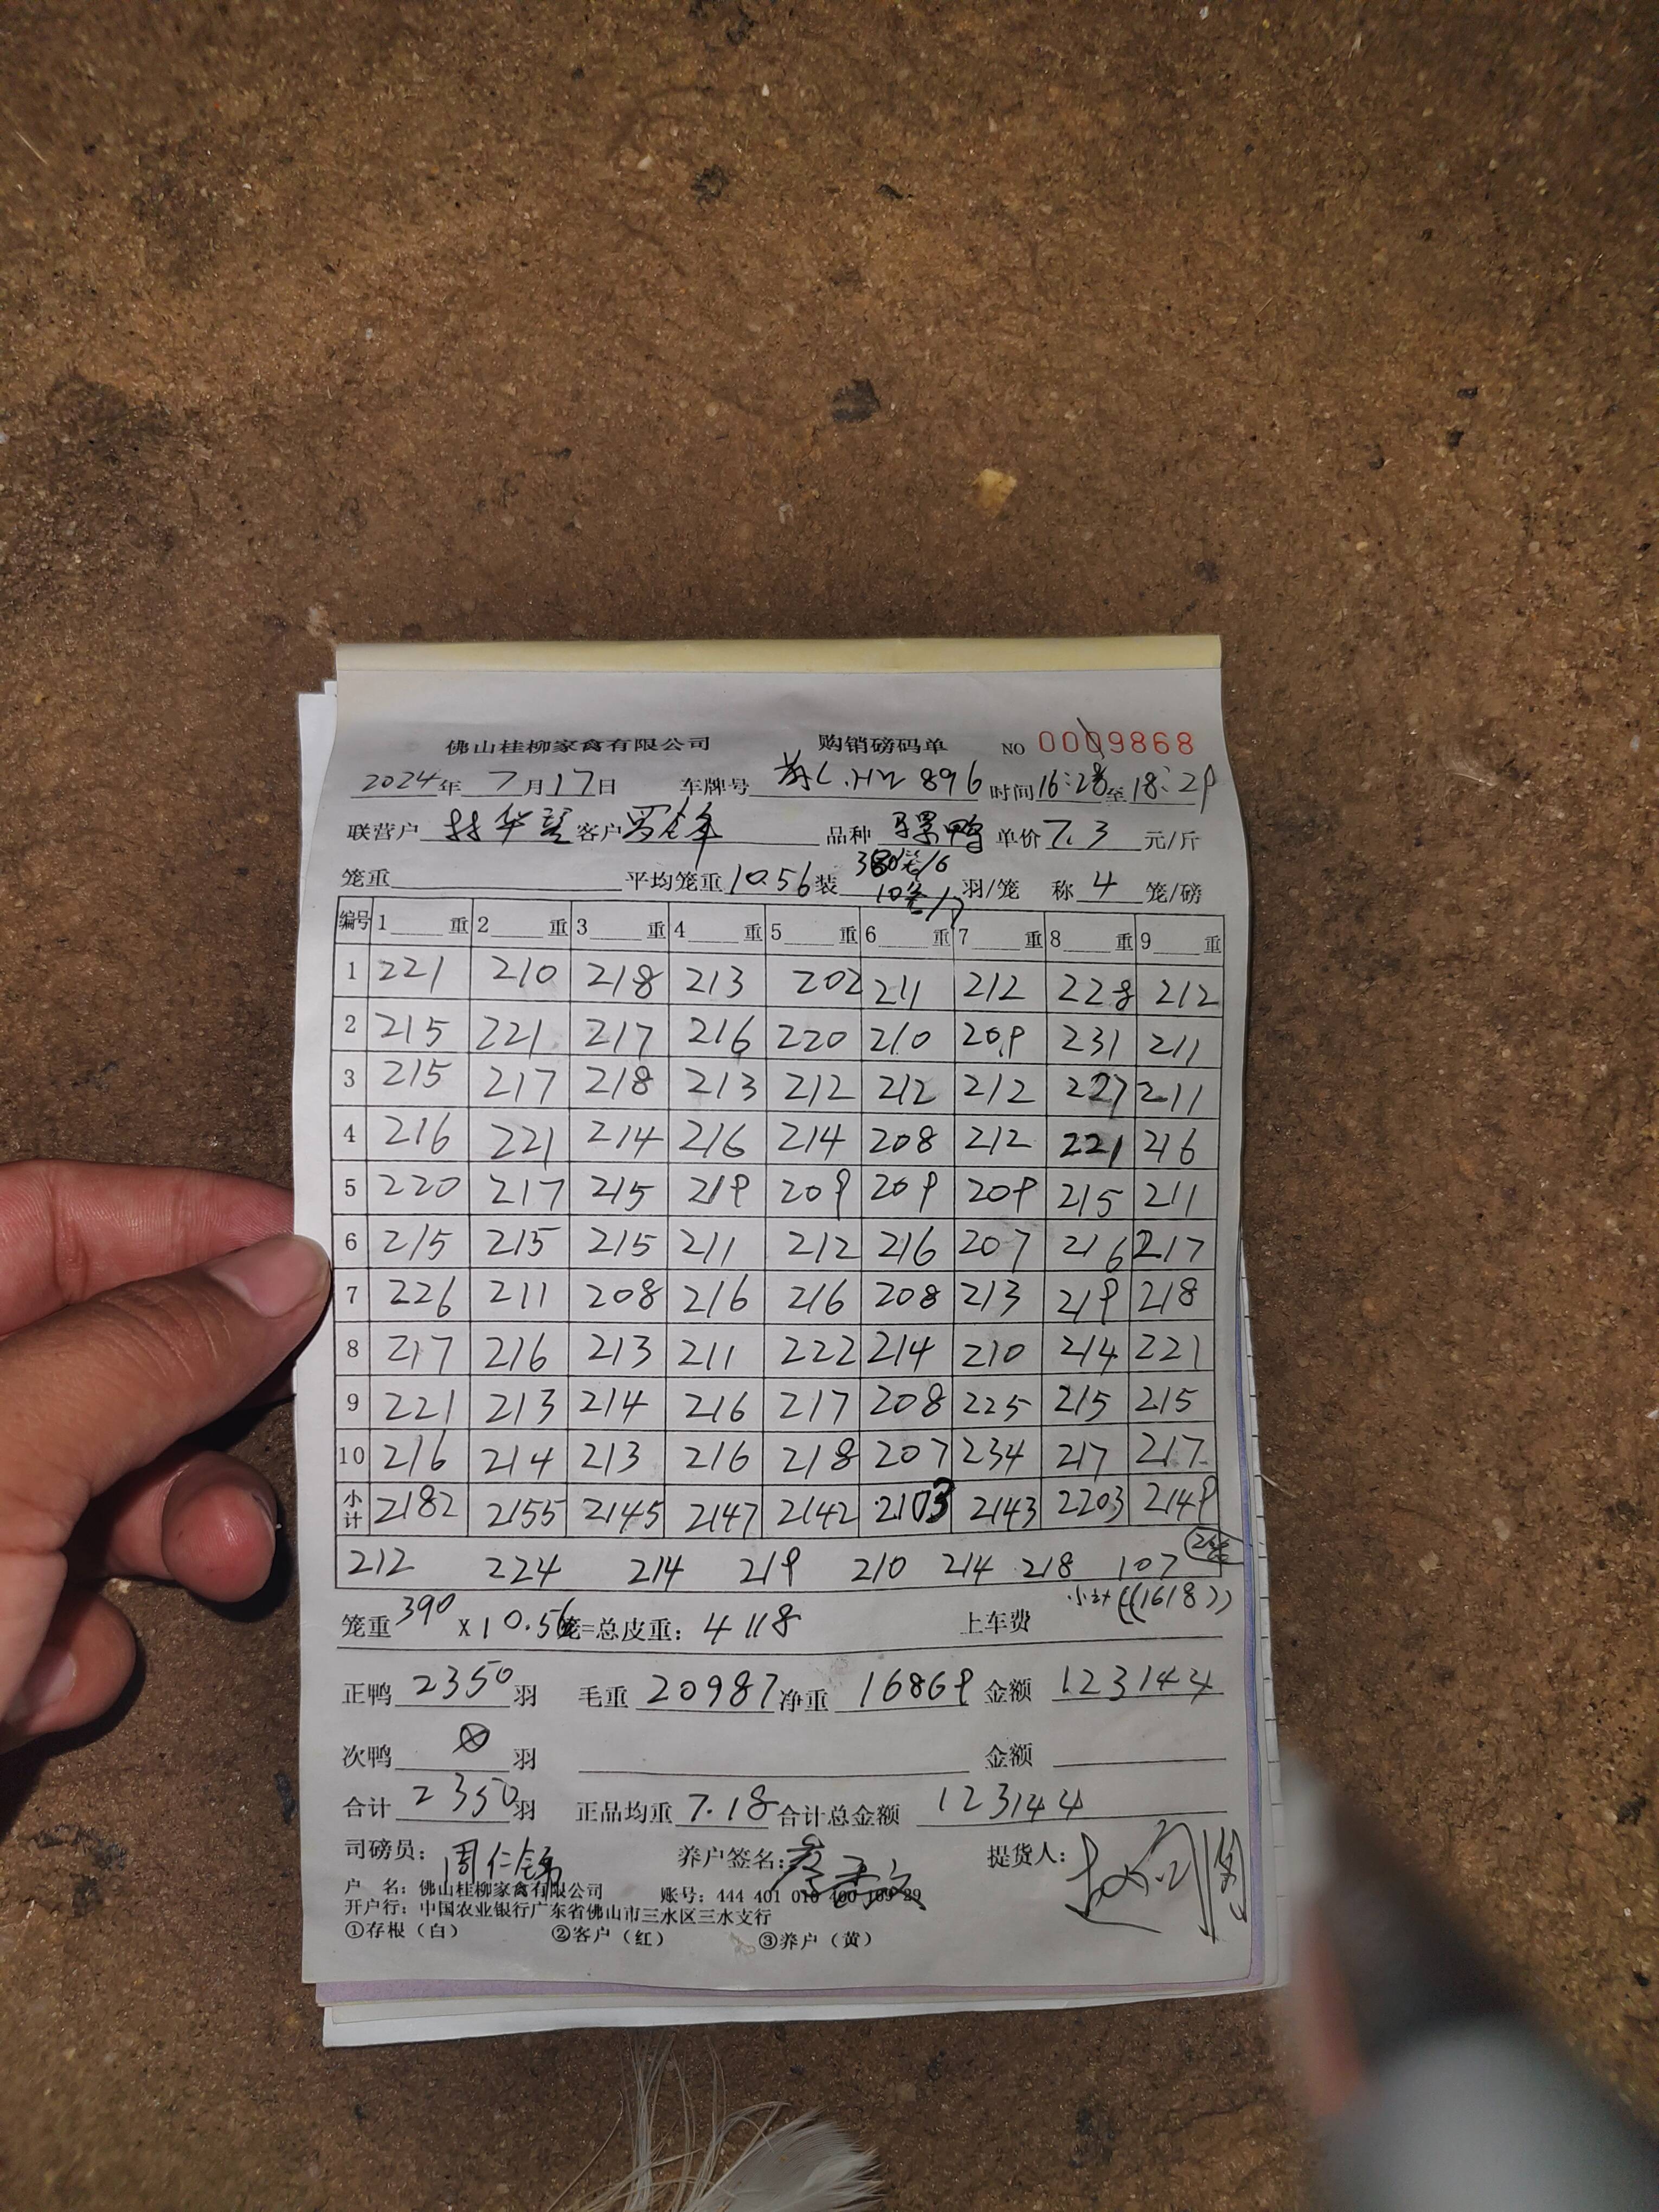 佛山桂柳家禽有限公司 购销磅码单 NO 0009868
2024年 7月17日 车牌号 L.HW 896 时间16:28至18:29
联营户 林华 客户 罗锋 品种 骡鸭 单价 7.3 元/斤
笼重 平均笼重 10.56 装 380笼/6 羽/笼 称 4 笼/磅
10笼/7
编号 1 重 2 重 3 重 4 重 5 重 6 重 7 重 8 重 9 重
1 221 210 218 213 202 211 212 228 212
2 215 221 217 216 220 210 209 231 211
3 215 217 218 213 212 212 212 227 211
4 216 221 214 216 214 208 212 221 216
5 220 217 215 219 209 209 209 215 211
6 215 215 215 211 212 216 207 216 217
7 226 211 208 216 216 208 213 219 218
8 217 216 213 211 222 214 210 214 221
9 221 213 214 216 217 208 225 215 215
10 216 214 213 216 218 207 234 217 217
小计 2182 2155 2145 2147 2142 2103 2143 2203 2149
212 224 214 219 210 214 218 107 2笼
笼重 390 x 10.56 笼=总皮重: 4118 上车费 小计((1618))
正鸭 2350 羽 毛重 20987 净重 16869 金额 123144
次鸭 羽 金额
合计 2350 羽 正品均重 7.18 合计总金额 123144
司磅员: 周仁锦 养户签名: 提货人:
户 名: 佛山桂柳家禽有限公司 账号: 444 401 010 400 109 29
开户行: 中国农业银行广东省佛山市三水区三水支行
①存根(白) ②客户(红) ③养户(黄)